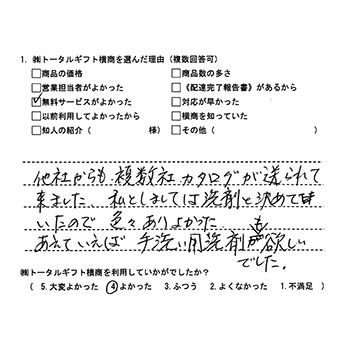 1. ㈱トータルギフト横商を選んだ理由（複数回答可）
□商品の価格 □商品数の多さ
□営業担当者がよかった □《配達完了報告書》があるから
☑無料サービスがよかった □対応が早かった
□以前利用してよかったから □横商を知っていた
□知人の紹介（ 様） □その他（ ）
他社からも、複数社カタログが送られて
来ました。私としましては洗剤と決めて
いたので色々ありよかった
あえていえば 手洗い用洗剤も欲しい
でした。
㈱トータルギフト横商を利用していかがでしたか？
（ 5. 大変よかった ④よかった 3. ふつう 2. よくなかった 1. 不満足 ）